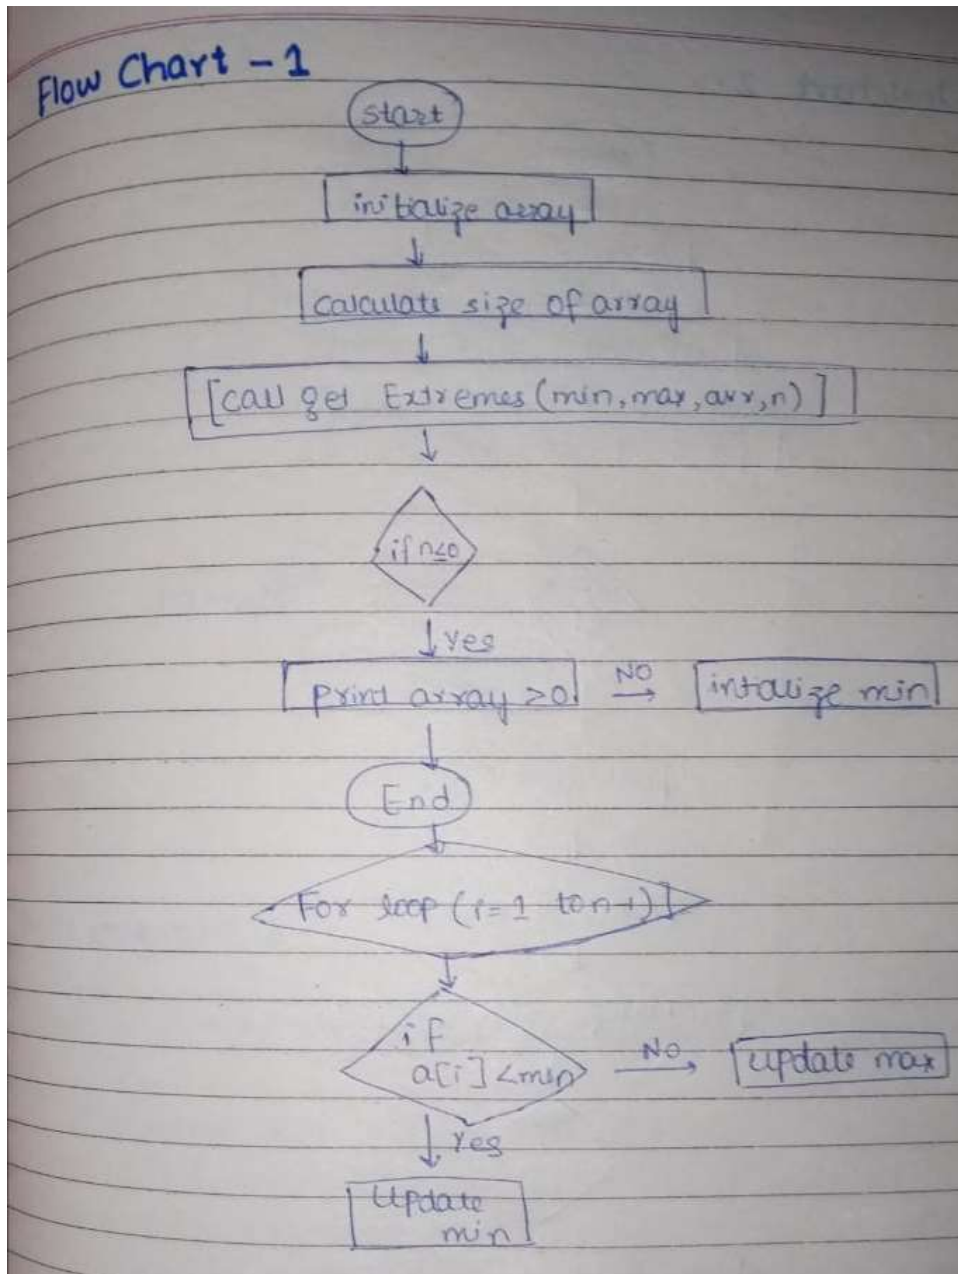 Flow Chart - 1
start
initialize array
calculate size of array
[call get Extremes (min, max, arr, n)]
if n≤0
Yes
print array >0
NO
intalize min
End
For loop (i=1 to n-1)]
if
a[i] <min
NO
update max
Yes
Update
min